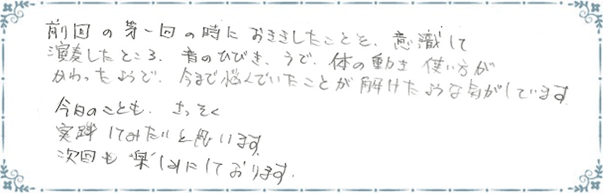 前回の第一回の時におききしたことを、意識して
演奏したところ、音のひびき、うで、体の動き 使い方が
かわったようで、今まで悩んでいたことが解けたような気がしています。
今日のことも、さっそく
実践してみたいと思います。
次回も楽しみにしております。